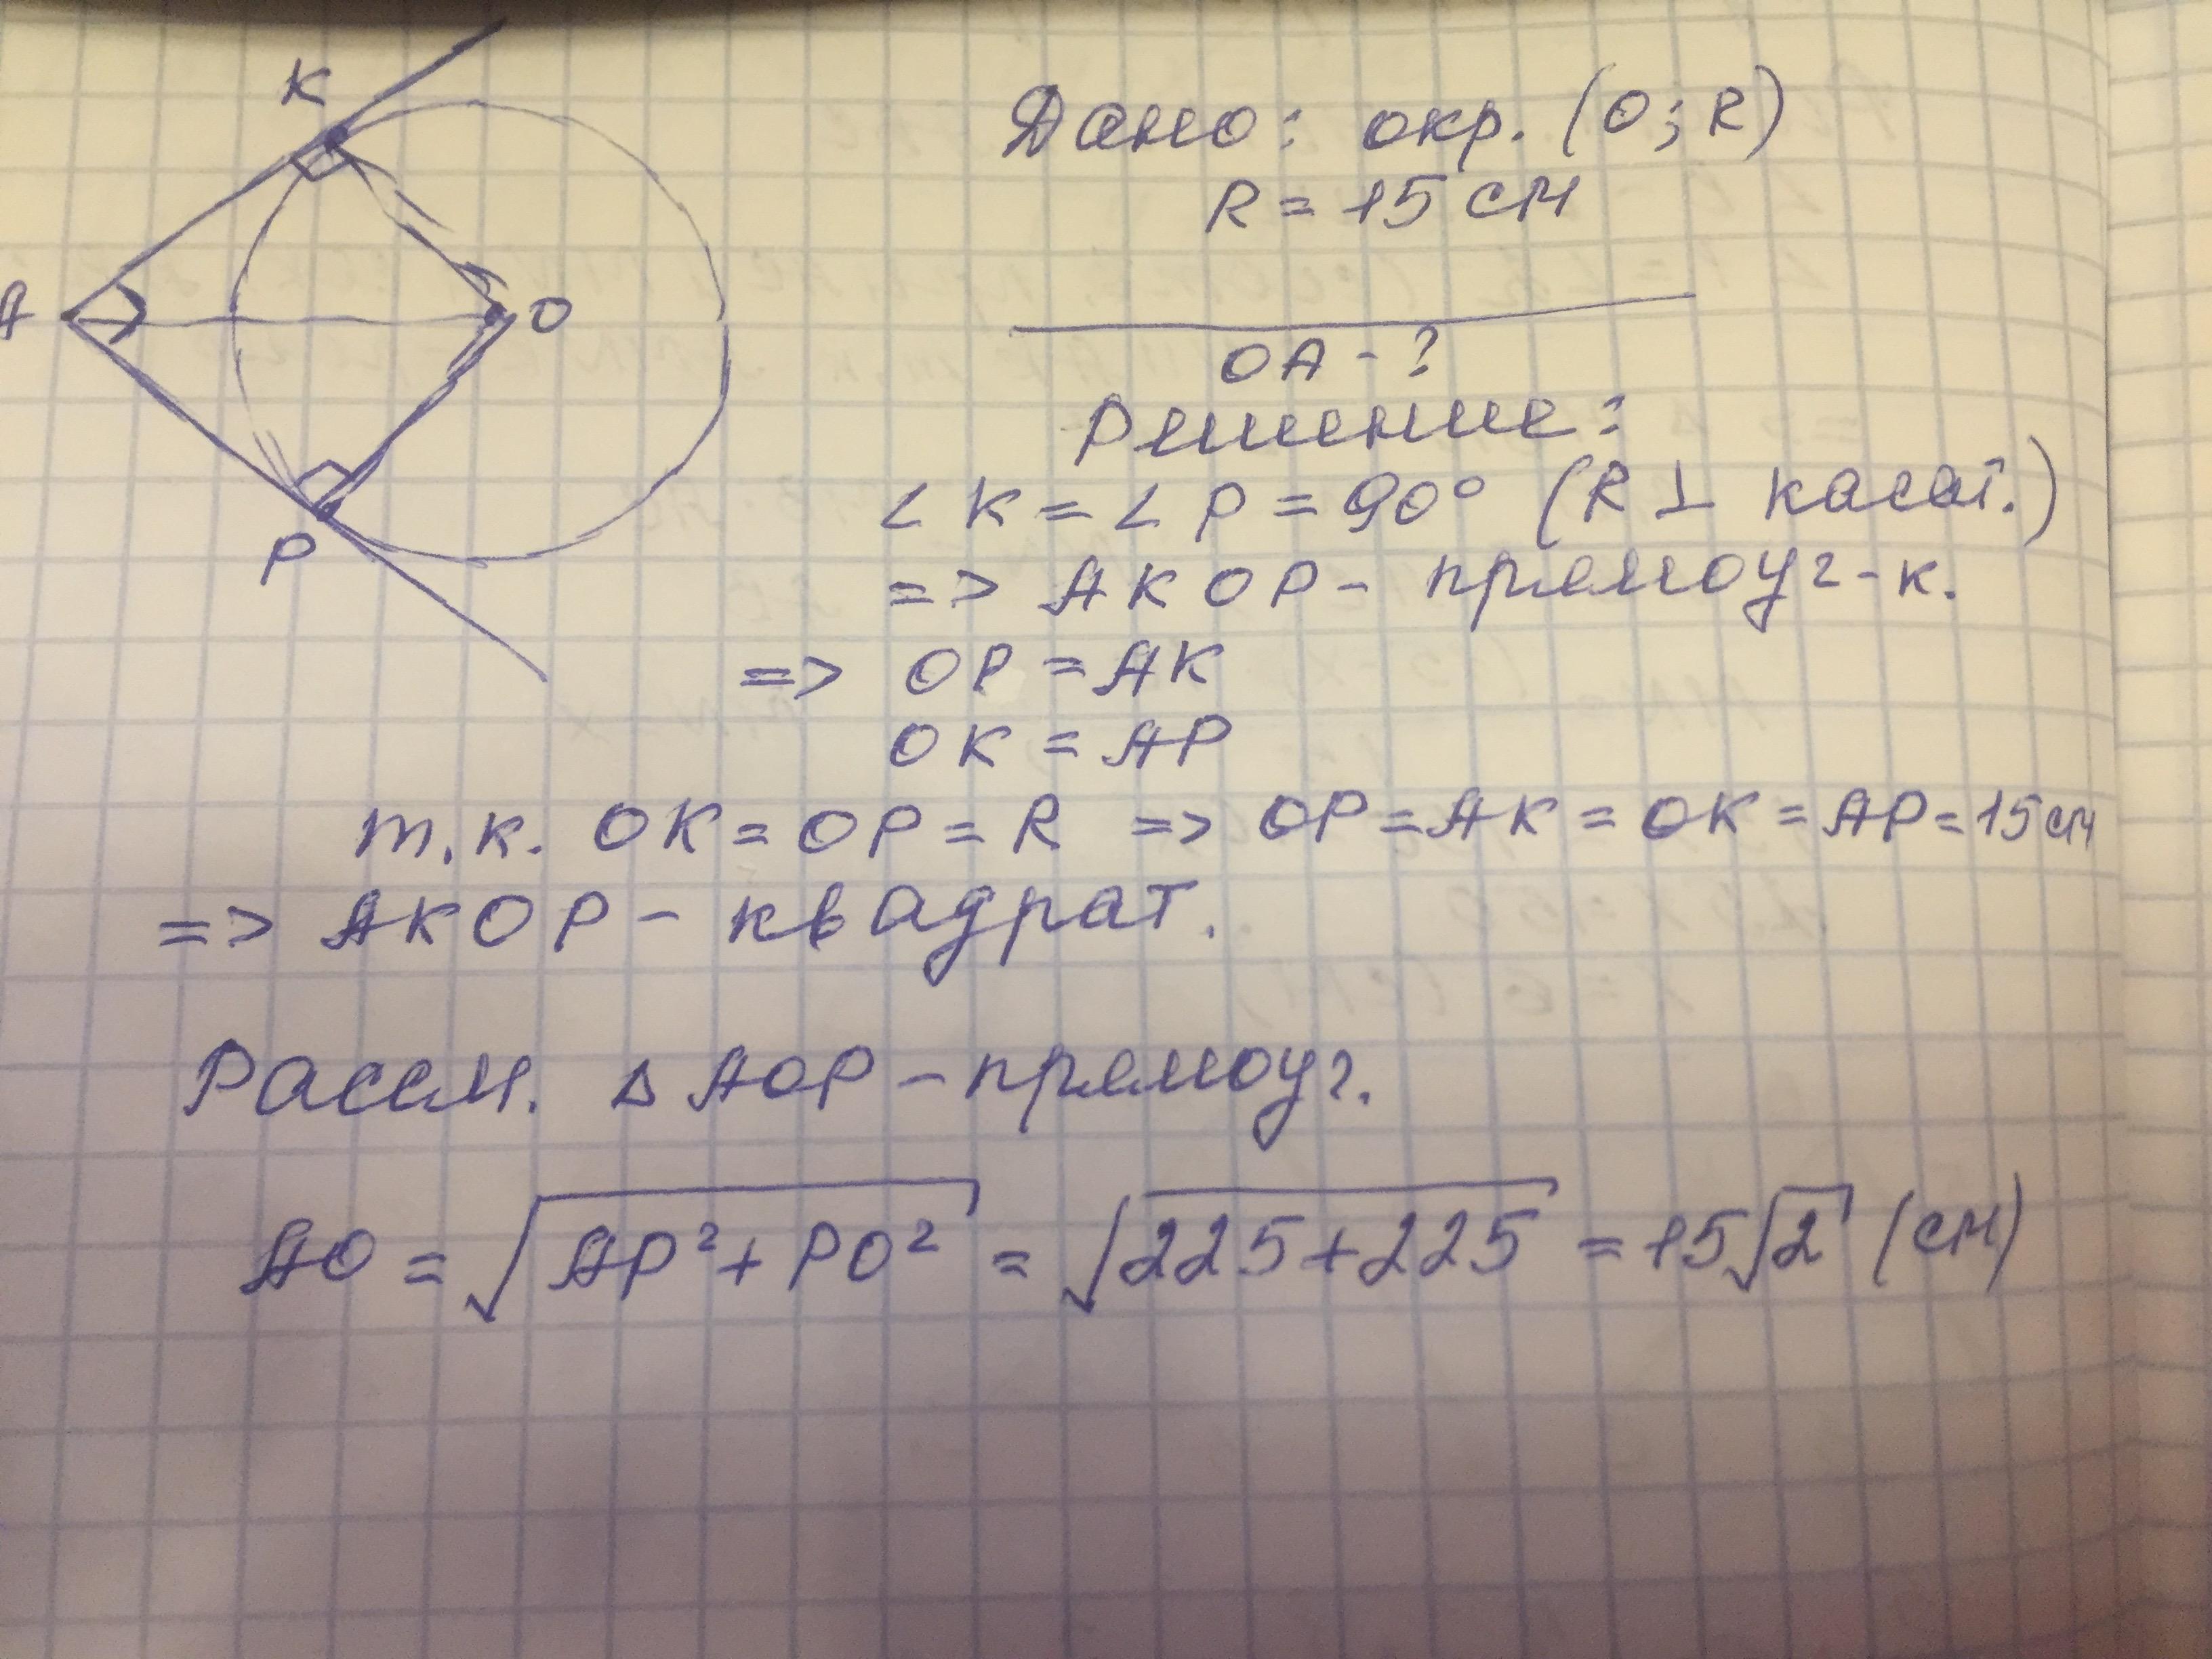 K
A
O
P
Дано: окр. (O; R)
R = 15 см
OA - ?
Решение:
∠ K = ∠ P = 90° (R ⊥ касат.)
=> AKOP - прямоуг-к.
=> OP = AK
OK = AP
т.к. OK = OP = R => OP = AK = OK = AP = 15 см
=> AKOP - квадрат.
Рассм. Δ AOP - прямоуг.
AO = √(AP² + PO²) = √(225 + 225) = 15√2 (см)